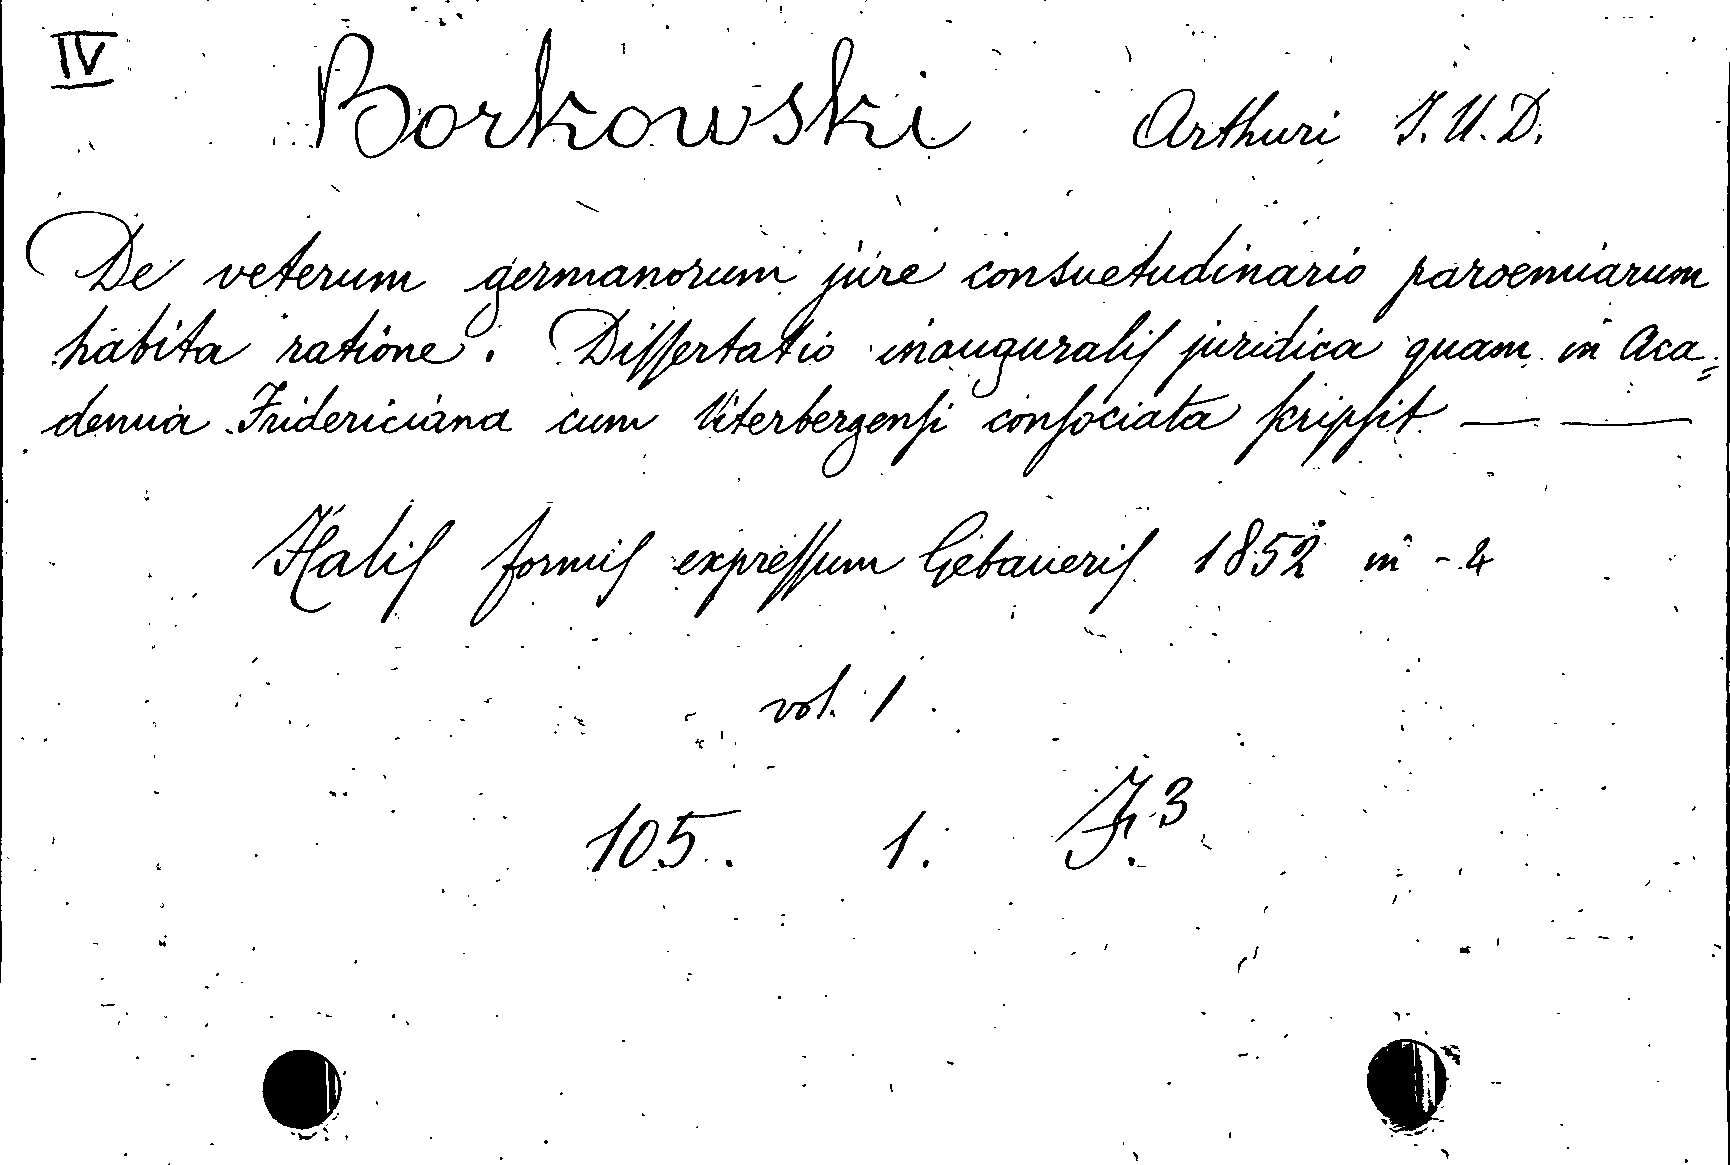 IV
Borkowski Arthuri J. U. D.
De veterum germanorum jure consuetudinario paroemiarum
habita ratione. Dissertatio inauguralis juridica quam in Aca=
demia Fridericiana cum Viterbergensi consociata scripsit — —
Halis formis expressum Gebaueris 1852 in - 4
vol. 1
105. 1.